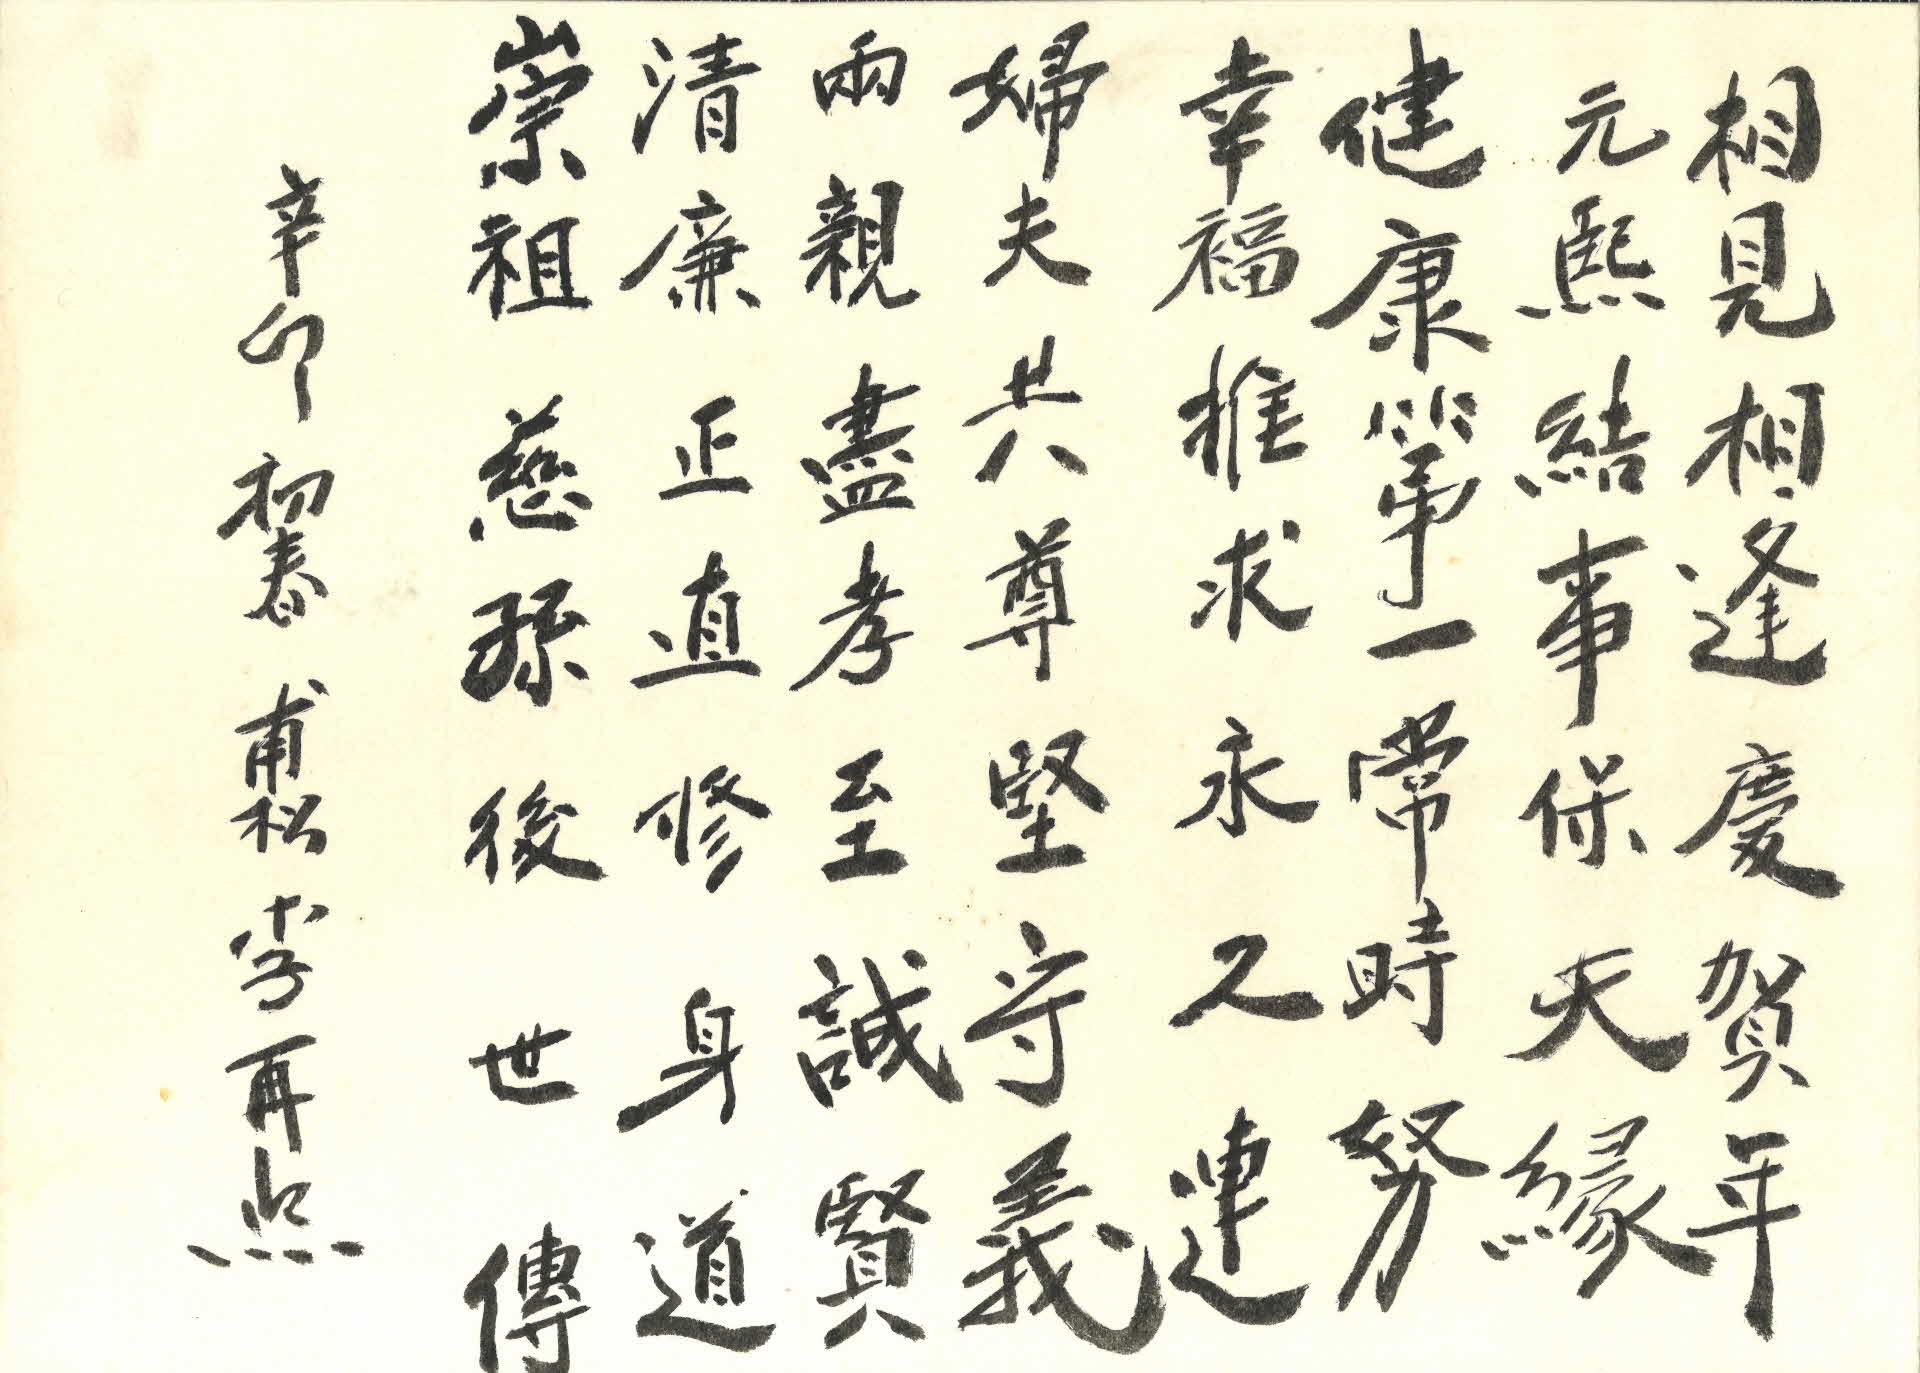 相見相逢慶賀年
元熙結事保天緣
健康第一常時努
幸福推求永久連
婦夫共尊堅守義
兩親盡孝至誠賢
清廉正直修身道
崇祖慈孫後世傳
辛卯 初春 甫松 李再